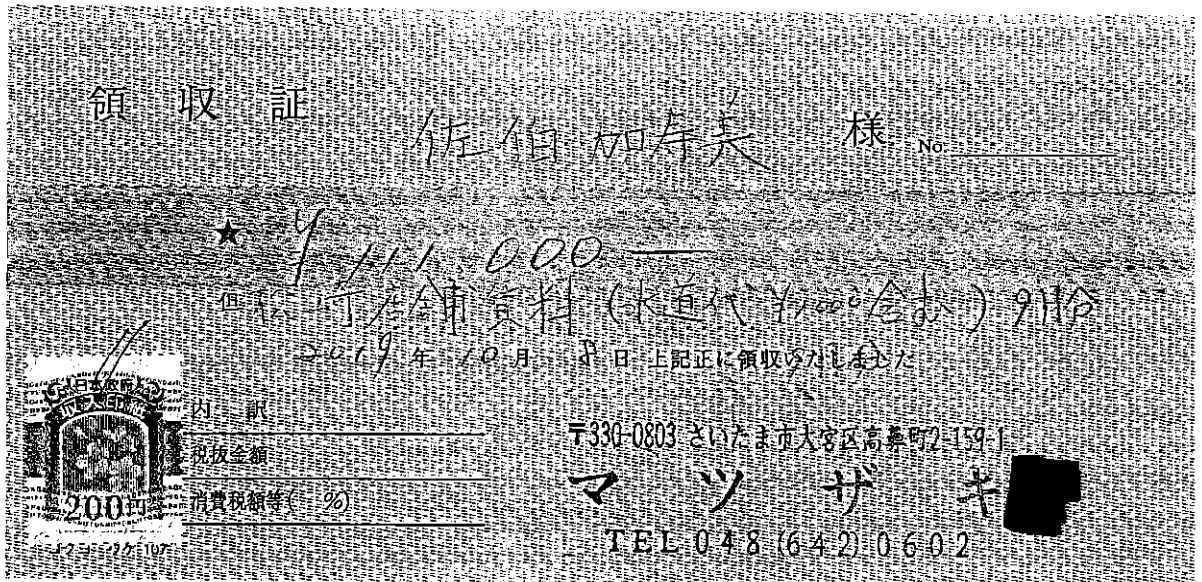 領収証
佐伯 加寿美 様 No.
★ ¥111,000—
但 町店舗賃料(水道代¥1000含む)9月分
2019年10月8日 上記正に領収いたしました
内訳
税抜金額
消費税額等( %)
日本政府
収入印紙
200円
〒330-0803 さいたま市大宮区高鼻町2-159-1
マツザキ
TEL 048(642)0602